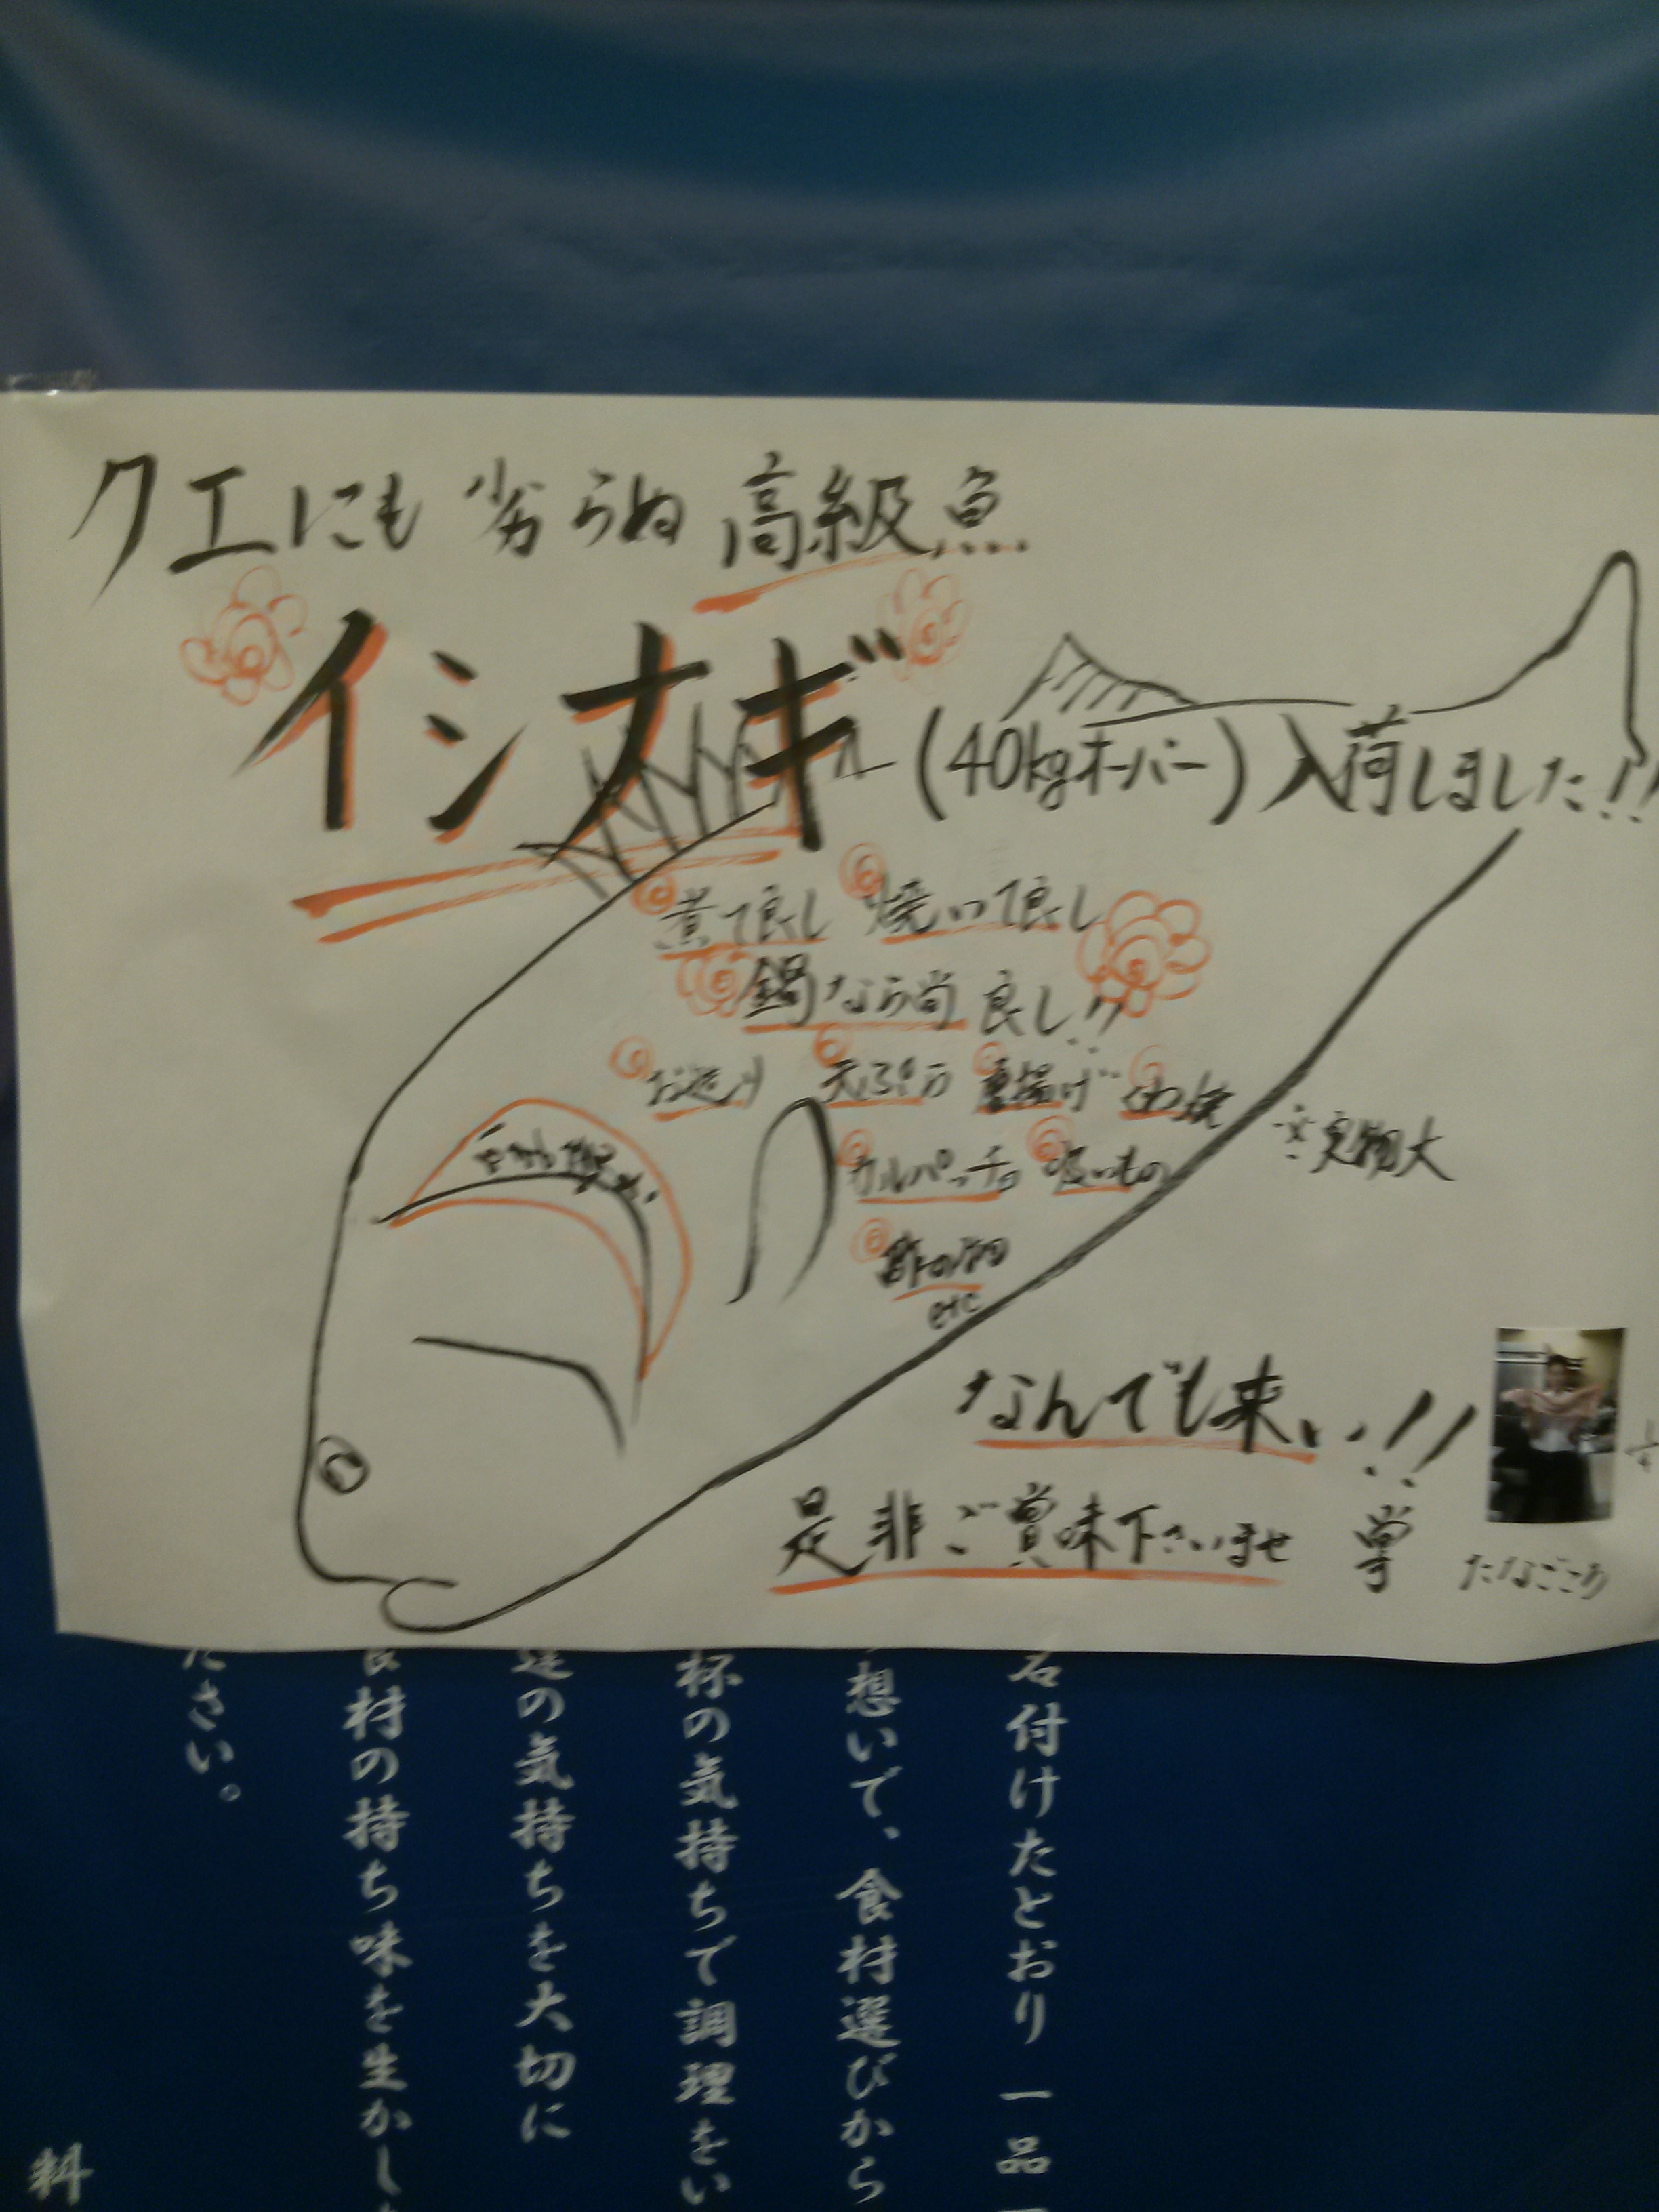 クエにも劣らぬ高級魚
イシナギ(40kgオーバー)入荷しました!!
煮て良し 焼いて良し
鍋なら尚良し!!
お造り 天ぷら 唐揚げ
カルパッチョ 吸いもの
酢の物
etc
※実物大
なんでも来い!!
是非ご賞味下さいませ 掌
たなごころ
名付けたとおり一品
想いで、食材選びから
杯の気持ちで調理をい
の気持ちを大切に
食材の持ち味を生かし
ださい。
料